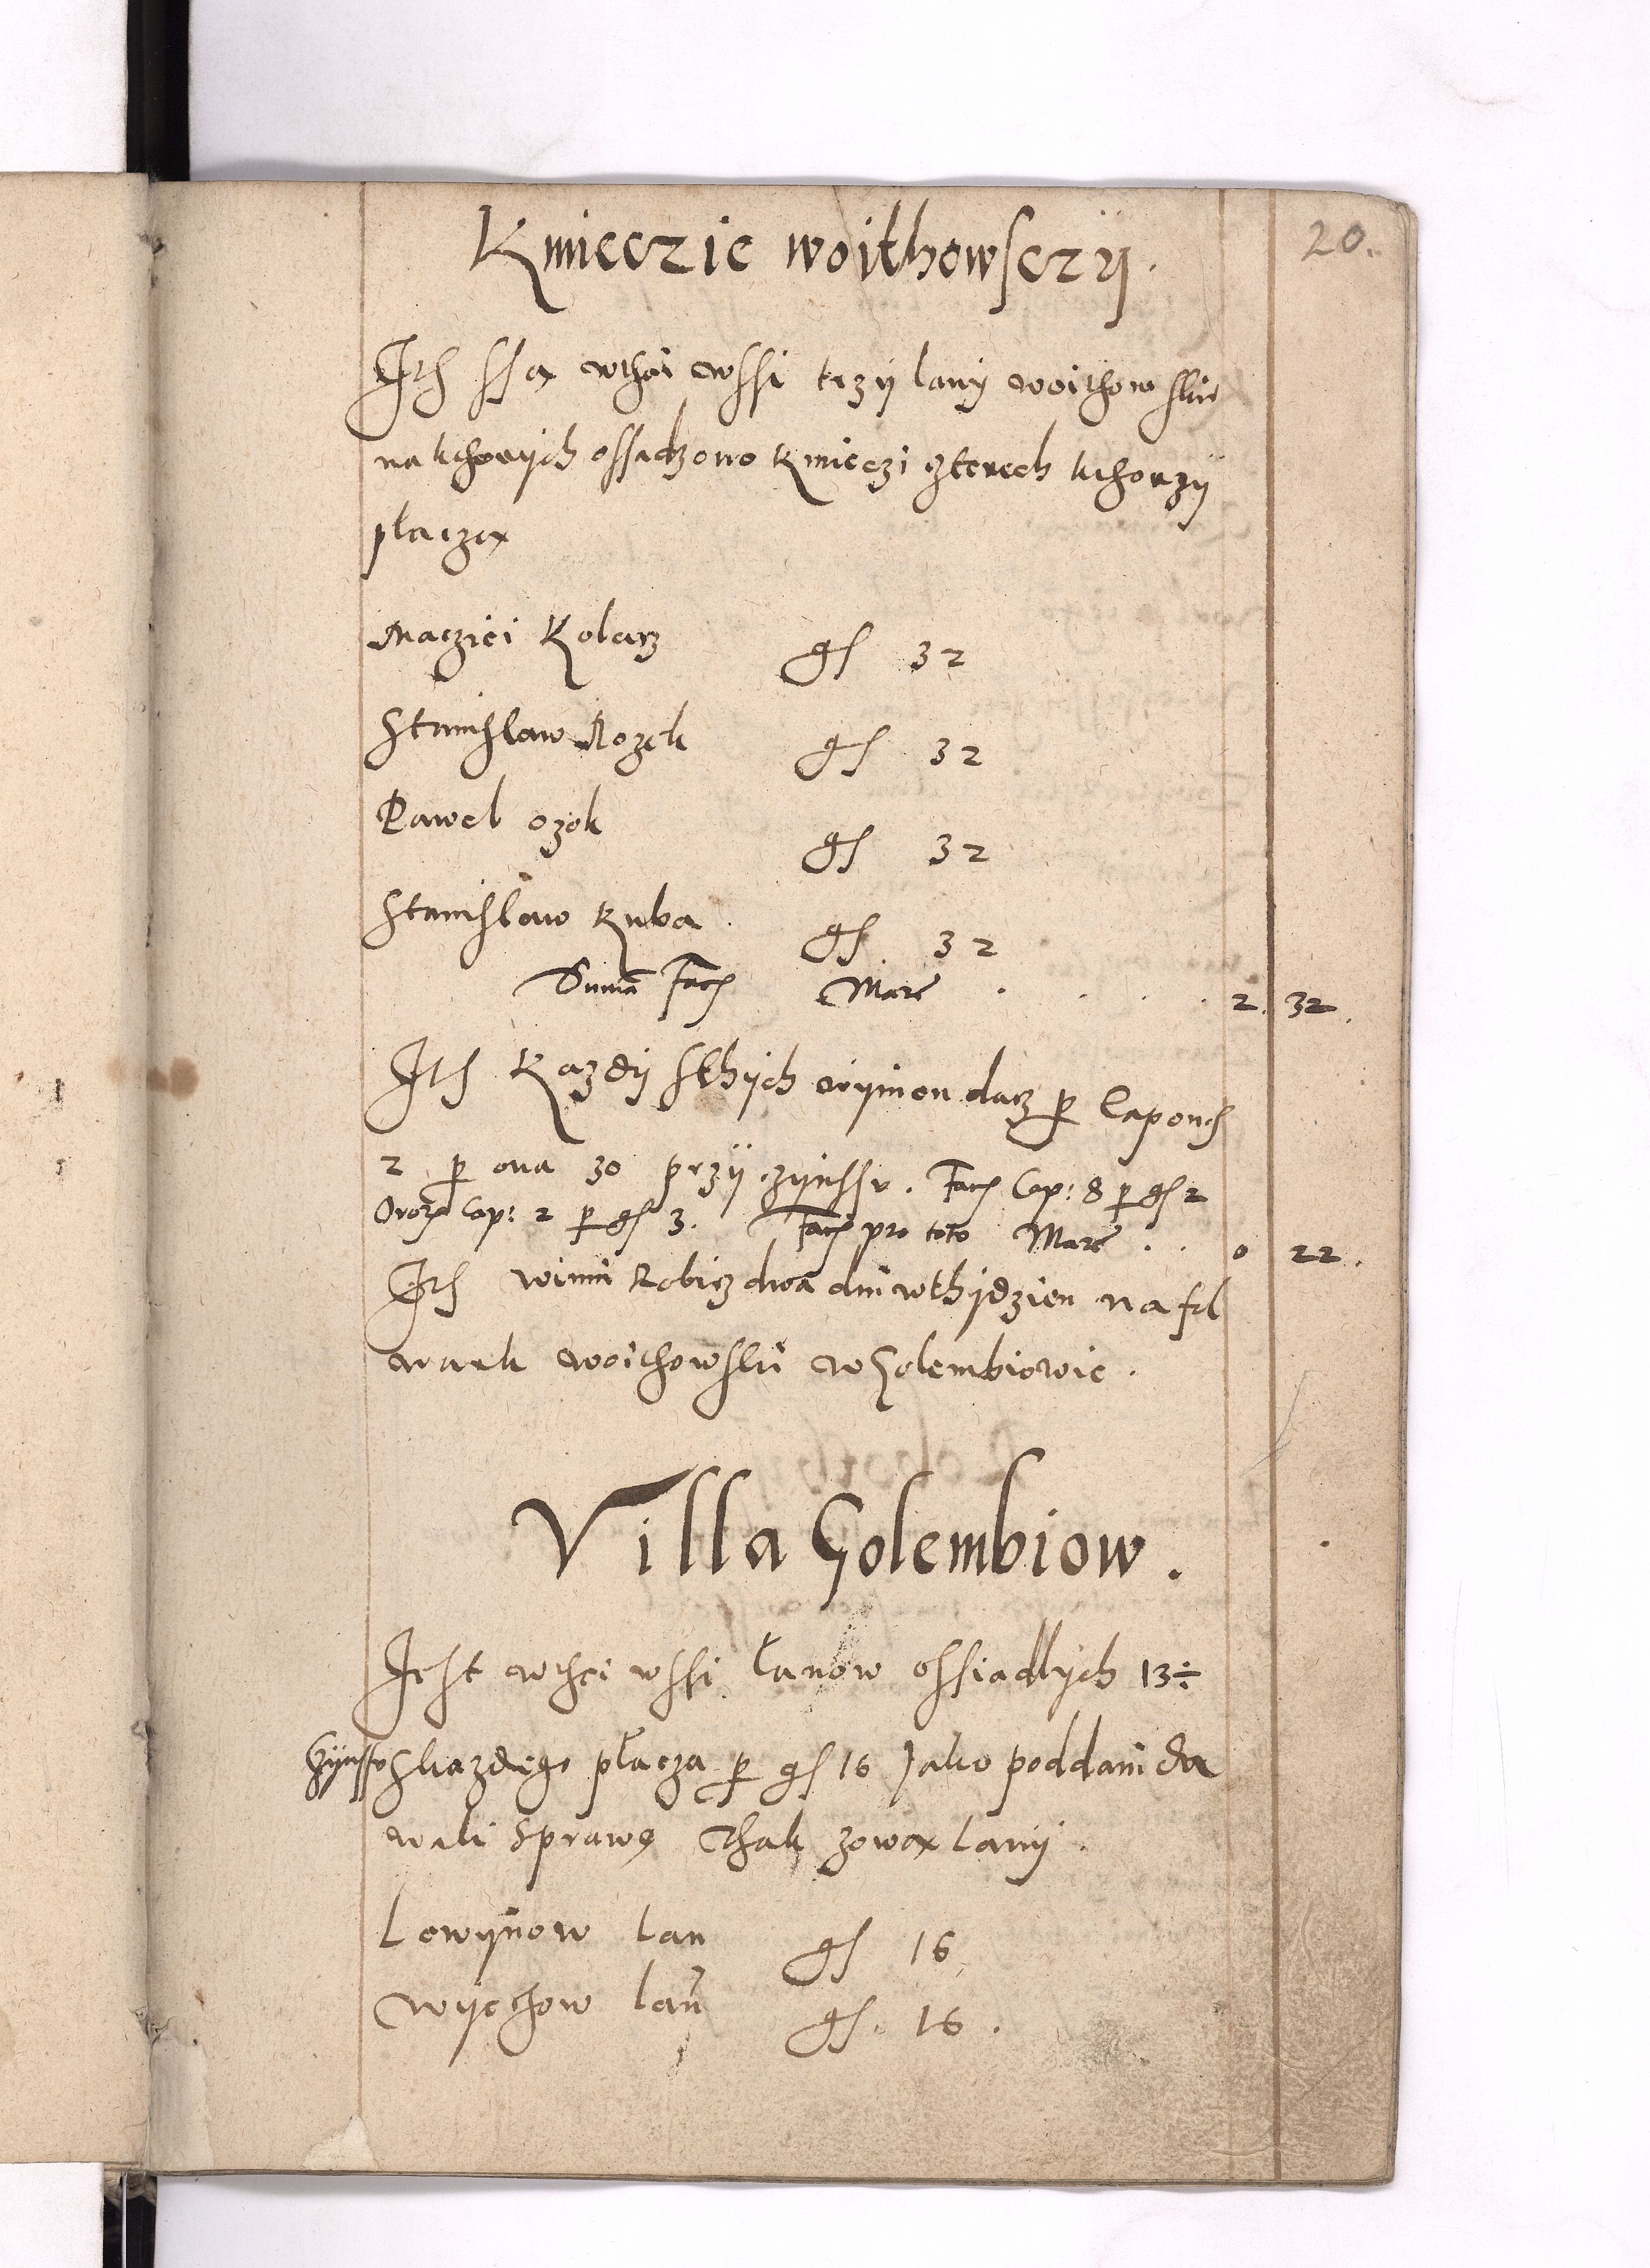 20.
Kmieczie woithowsczÿ.
Ite[m] ssą wthei wssi trzÿ lanÿ woithowskie
na kthorÿch ossadzono kmieczi czterech kthorzÿ
placzą
Macziei Kolarz gs 32
Stanislaw Rozek gs 32
Pawel ozok gs 32
Stanislaw Kuba gs 32
Suma Fac Marc . . . . 2. 32.
Ite[m] Kazdÿ sthÿch winien dacz p Capones
2 p ova 30 przÿ czÿnssu. Fac Cap: 8 p gs 2
Ovorum Cap: 2 p gs 3. Fac pro toto Marc . . 0 22.
Ite[m] winni Robicz dwa dni wthÿdzien na fol
wark woithowski wGolembiowie.
Villa Golembiow.
Jest wthei wssi łanow ossiadlÿch 13÷
Czÿnssu skazdego płacza p gs 16 Jako poddani da
wali sprawę Thak zową lanÿ.
Lowÿnow lan gs 16
Wÿchow lan gs. 16.